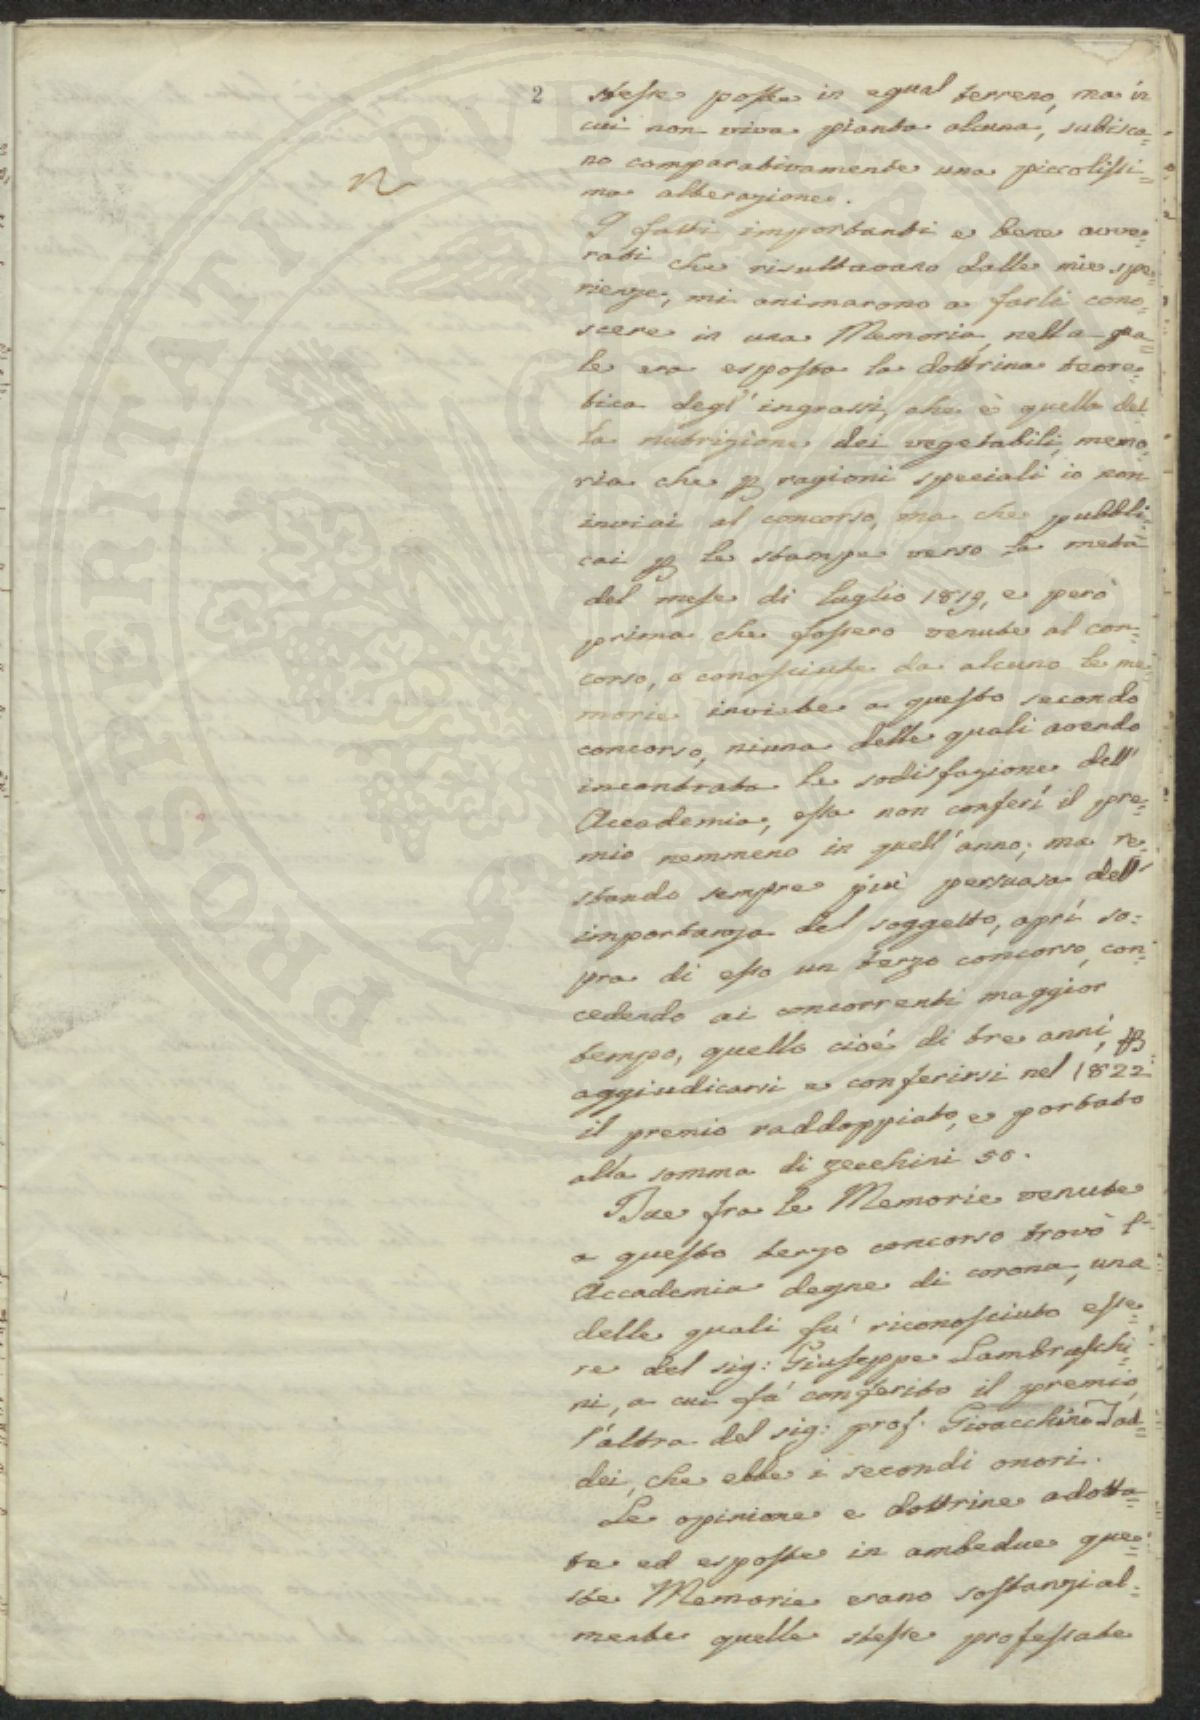 2
stesse poste in egual terreno, ma in
cui non viva pianta alcuna, subisca-
no comparativamente una piccolissi=
ma alterazione.
I fatti importanti e bene avve=
rati che risultavano dalle mie spe=
rienze, mi animarono a farli cono=
scere in una Memoria, nella qua=
le era esposta la dottrina teore=
tica degl'ingrassi, che è quella del
la nutrizione dei vegetabili, memo=
ria che p ragioni speciali io non
inviai al concorso, ma che pubbli=
cai p le stampe verso la metà
del mese di luglio 1819, e però
prima che fossero venute al con=
corso, o conosciute da alcuno le me
morie inviate a questo secondo
concorso, niuna delle quali avendo
incontrata la sodisfazione dell'
Accademia, essa non conferì il pre=
mio nemmeno in quell'anno; ma re=
stando sempre più persuasa dell'
importanza del soggetto, aprì so=
pra di esso un terzo concorso, con=
cedendo ai concorrenti maggior
tempo, quello cioè di tre anni, p
aggiudicarsi e conferirsi nel 1822
il premio raddoppiato, e portato
alla somma di zecchini 50.
Due fra le Memorie venute
a questo terzo concorso trovò l'
Accademia degne di corona, una
delle quali fu' riconosciuto esse=
re del sig: Giuseppe Lambruschi=
ni, a cui fu' conferito il premio,
l'altra del sig: prof. Gioacchino Tad=
dei, che ebbe i secondi onori.
Le opinione e dottrine adotta=
te ed esposte in ambedue que=
ste Memorie erano sostanzial=
mente quelle stesse professate
PROSPERITATI PVBLICAE